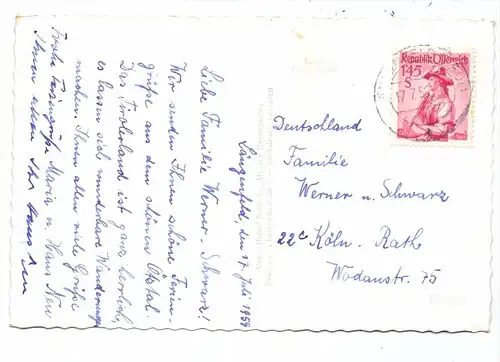 Längenfeld, den 17. Juli 1959
Liebe Familie Werner-Schwarz!
Wir senden Ihnen schöne Ferien-
grüße aus dem schönen Ötztal.
Das Tirolerland ist ganz herrlich,
es lassen sich wunderbare Wanderungen
machen. Ihnen allen viele Grüße
Frohe Feriengrüße Maria u. Hans
Ihnen allen Ihr
Republik Österreich
1.45
S
Deutschland
Familie
Werner u. Schwarz
22c Köln-Rath
Wodanstr. 75